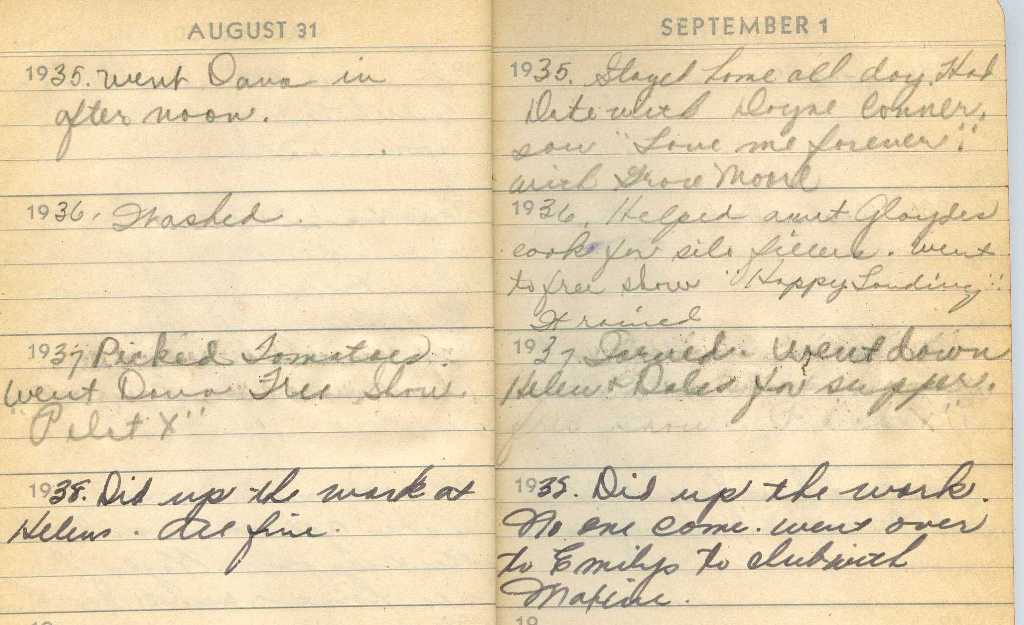 AUGUST 31
1935. went Dana in
after noon.
1936. Washed.
1937 Picked Tomatoes.
Went Dana Free Show
"Pilot X"
1938. Did up the work at
Helens. All fine.
SEPTEMBER 1
1935. Stayed home all day. Had
Date with Doyne Conner.
saw "Love me forever".
with Grace Moore
1936. Helped aunt Gladys
cook for silo fillers. went
to free show "Happy Landing".
It rained
1937 Ironed. Went down
Helen & Dales for supper.
1938. Did up the work.
No one come. went over
to Emilys to club with
Maxine.
19
19